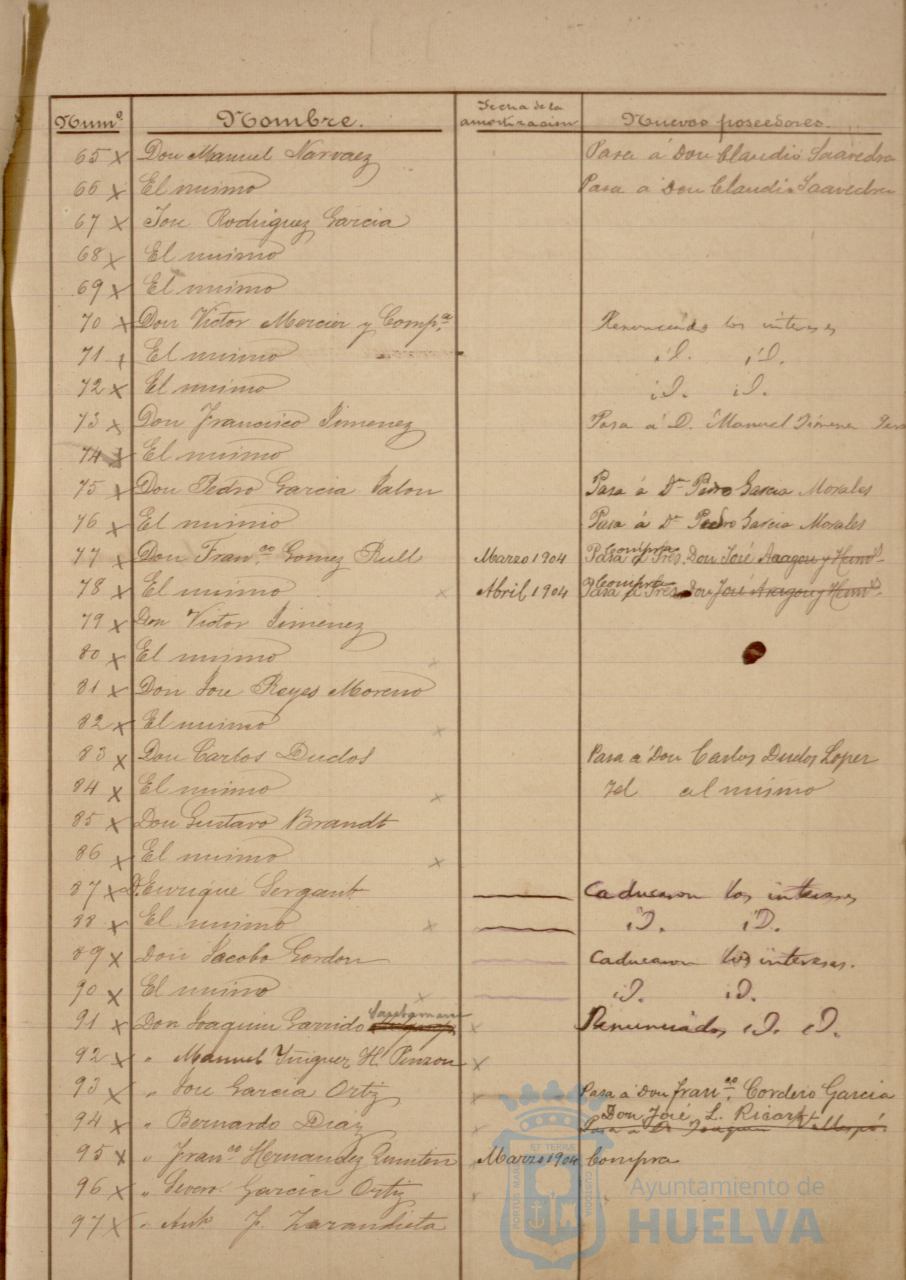 Numº Nombre. Fecha de la amortización Nuevos poseedores.
65 x Don Manuel Narvaez Pasa á Don Claudio Saavedra
66 x El mismo Pasa á Don Claudio Saavedra
67 x Jose Rodriguez Garcia
68 x El mismo
69 x El mismo
70 x Don Victor Mercier y Comp.ª Renunciado los intereses
71 x El mismo iD. iD.
72 x El mismo iD. iD.
73 x Don Francisco Jimenez Pasa á D. Manuel Jimenez
74 x El mismo
75 x Don Pedro Garcia Jalon Pasa á Dn Pedro Garcia Morales
76 x El mismo Pasa á Dn Pedro Garcia Morales
77 x Don Fran.co Gomez Rull Marzo 1904 Compra Pasa á Sres. Don José Aragon y Herm.s
78 x El mismo x Abril 1904 Compra Pasa á Sres. Don José Aragon y Herm.s
79 x Don Victor Jimenez
80 x El mismo x
81 x Don Jose Reyes Moreno
82 x El mismo x
83 x Don Carlos Duclos Pasa á Don Carlos Duclos Lopez
84 x El mismo x al mismo
85 x Don Gustavo Brandt
86 x El mismo x
87 x D. Enrique Sergant Caducaron los intereses
88 x El mismo x iD. iD.
89 x Don Jacobo Gordon Caducaron los intereses.
90 x El mismo x iD. iD.
91 x Don Joaquin Garrido Santamaria x Renunciados iD. iD.
92 x " Manuel Yñiguez H. Pinzon x
93 x " Jose Garcia Ortiz x Pasa á Don Fran.co Cordero Garcia
Don José L. Ricart
94 x " Bernardo Diaz x Pasa á Dn Joaquin
95 x " Fran.co Hernandez Quintero Marzo 1904 Compra
96 x " Severo Garcia Ortiz x
97 x " Ant.o J. Zarandieta
PORTUS MARIS ET TERRAE CUSTODIA
Ayuntamiento de
HUELVA